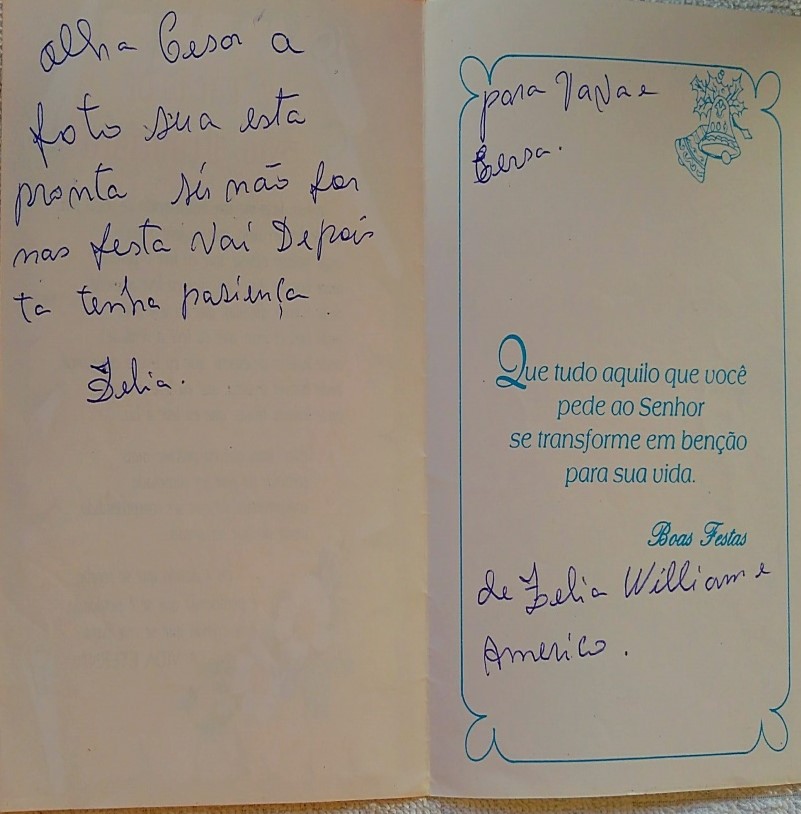 olha Cesar a
foto sua esta
pronta si não for
nas festa vai Depois
ta tenha pasiença
Zelia.
para Vana e
Cersa.
Que tudo aquilo que você
pede ao Senhor
se transforme em benção
para sua vida.
Boas Festas
de Zelia William e
Americo.